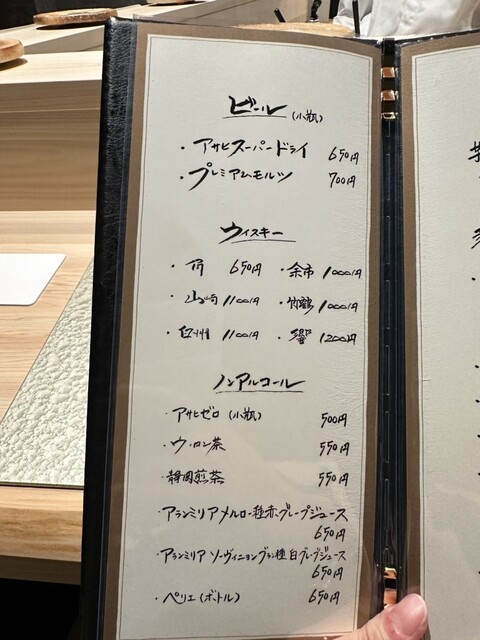 ビール (小瓶)
・アサヒスーパードライ 650円
・プレミアムモルツ 700円
ウィスキー
・角 650円 ・余市 1000円
・山崎 1100円 ・竹鶴 1000円
・白州 1100円 ・響 1200円
ノンアルコール
・アサヒゼロ (小瓶) 500円
・ウーロン茶 550円
・静岡煎茶 550円
・アランミリア メルロー種赤グレープジュース
650円
・アランミリア ソーヴィニヨンブラン種白グレープジュース
650円
・ペリエ (ボトル) 650円